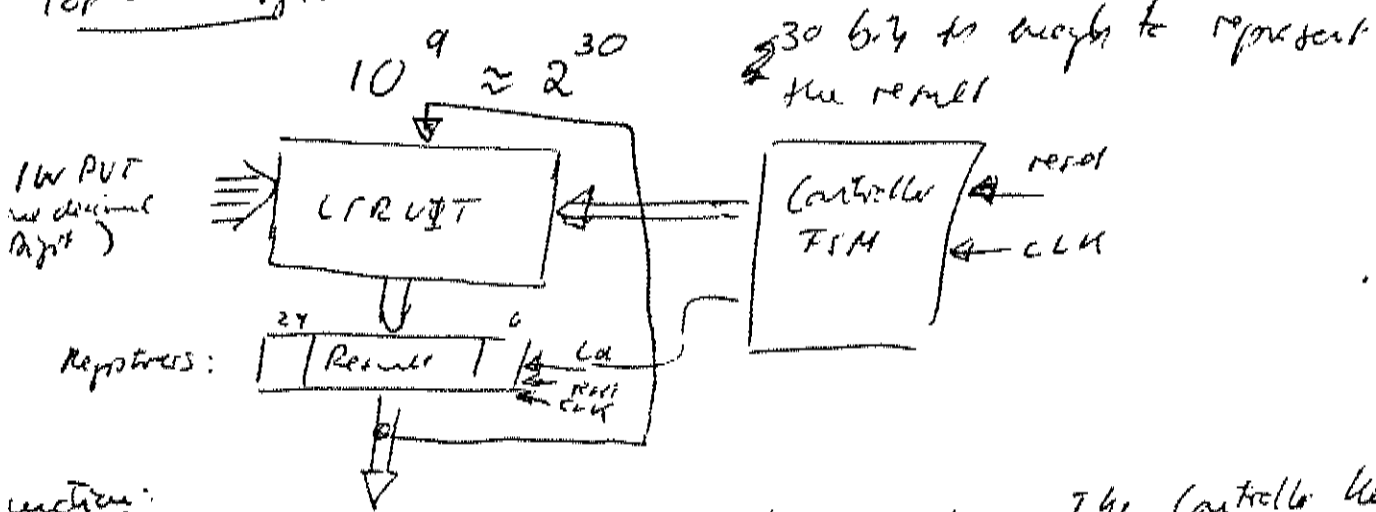 Top
10^9 ≈ 2^30
30 bits is enough to represent
the result
INPUT
decimal
Digit)
Controller
FSM
reset
CLK
29
0
Registers:
Result
Ld
reset
CLK
The Controller